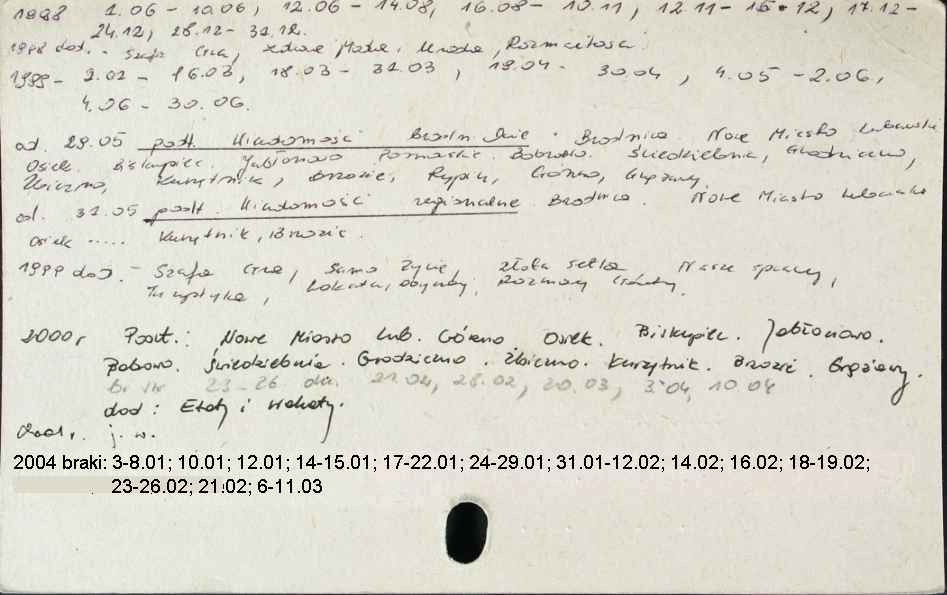 1998 1.06 - 10.06, 12.06 - 14.08, 16.08 - 10.11, 12.11 - 15.12, 17.12 -
24.12, 28.12 - 31.12.
1998 dod. - Szafa Gra, Zdrowie Matka, Uroda, Rozmaitości
1999 - 2.02 - 16.03, 18.03 - 31.03, 19.04 - 30.04, 4.05 - 2.06,
4.06 - 30.06.
od. 29.05 podt. Wiadomości Brodn. Brodnica. Nowe Miasto Lubawskie
Osiek. Biskupiec. Jabłonowo Pomorskie. Bobrowo. Świedziebnia, Grodziczno,
Zbiczno, Kurzętnik, Brzozie, Rypin, Górzno, Grążawy
od. 31.05 podt. Wiadomości regionalne Brodnica. Nowe Miasto Lubawskie
Osiek ..... Kurzętnik, Brzozie.
1999 dod. - Szafa Gra, Samo Życie, Złota setka, Nasze sprawy,
Turystyka,
2000 r Podt.: Nowe Miasto Lub. Górzno. Osiek. Biskupiec. Jabłonowo.
Bobowo. Świedziebnia. Grodziczno. Zbiczno. Kurzętnik. Brzozie. Grążawy.
Br Nr 23-26 dn. 28.02, 20.03, 3.04, 10.04
dod: Etaty i wakaty.
j.w.
2004 braki: 3-8.01; 10.01; 12.01; 14-15.01; 17-22.01; 24-29.01; 31.01-12.02; 14.02; 16.02; 18-19.02;
23-26.02; 21.02; 6-11.03